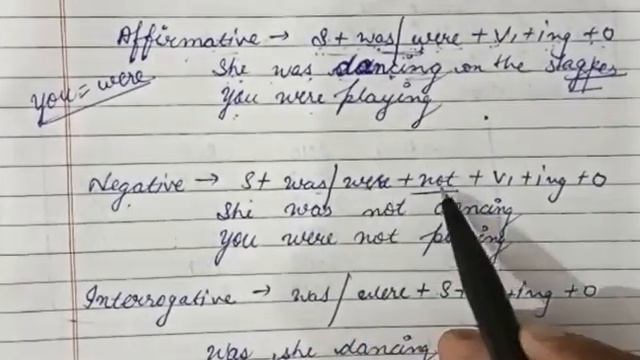 Affirmative → S + was/were + V1 + ing + O
She was dancing on the stage
you = were
You were playing
Negative → S + was/were + not + V1 + ing + O
She was not dancing
You were not playing
Interrogative → was/were + S + ing + O
was she dancing